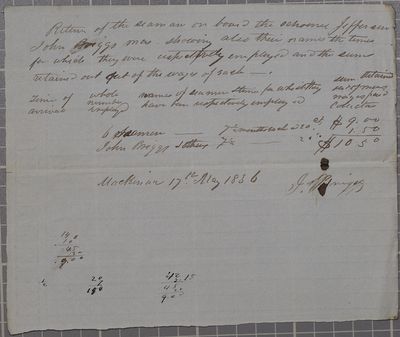 Return of the seaman on board the schooner Jefferson
John Briggs mas. shewing also their names the times
for which they were respectfully employed and the sums
retained out of the wages of each
Time of arrival
whole number employed
names of seamen & time for which they have been respectively employed
sum retained
wages paid
Collector
6 Seamen 7½ months each 20 cts $ 9.00
John Briggs 7½ 1.50
$ 10 50
Mackinac 17th May 1836
J. Briggs
45
9.00
20
150
9.00